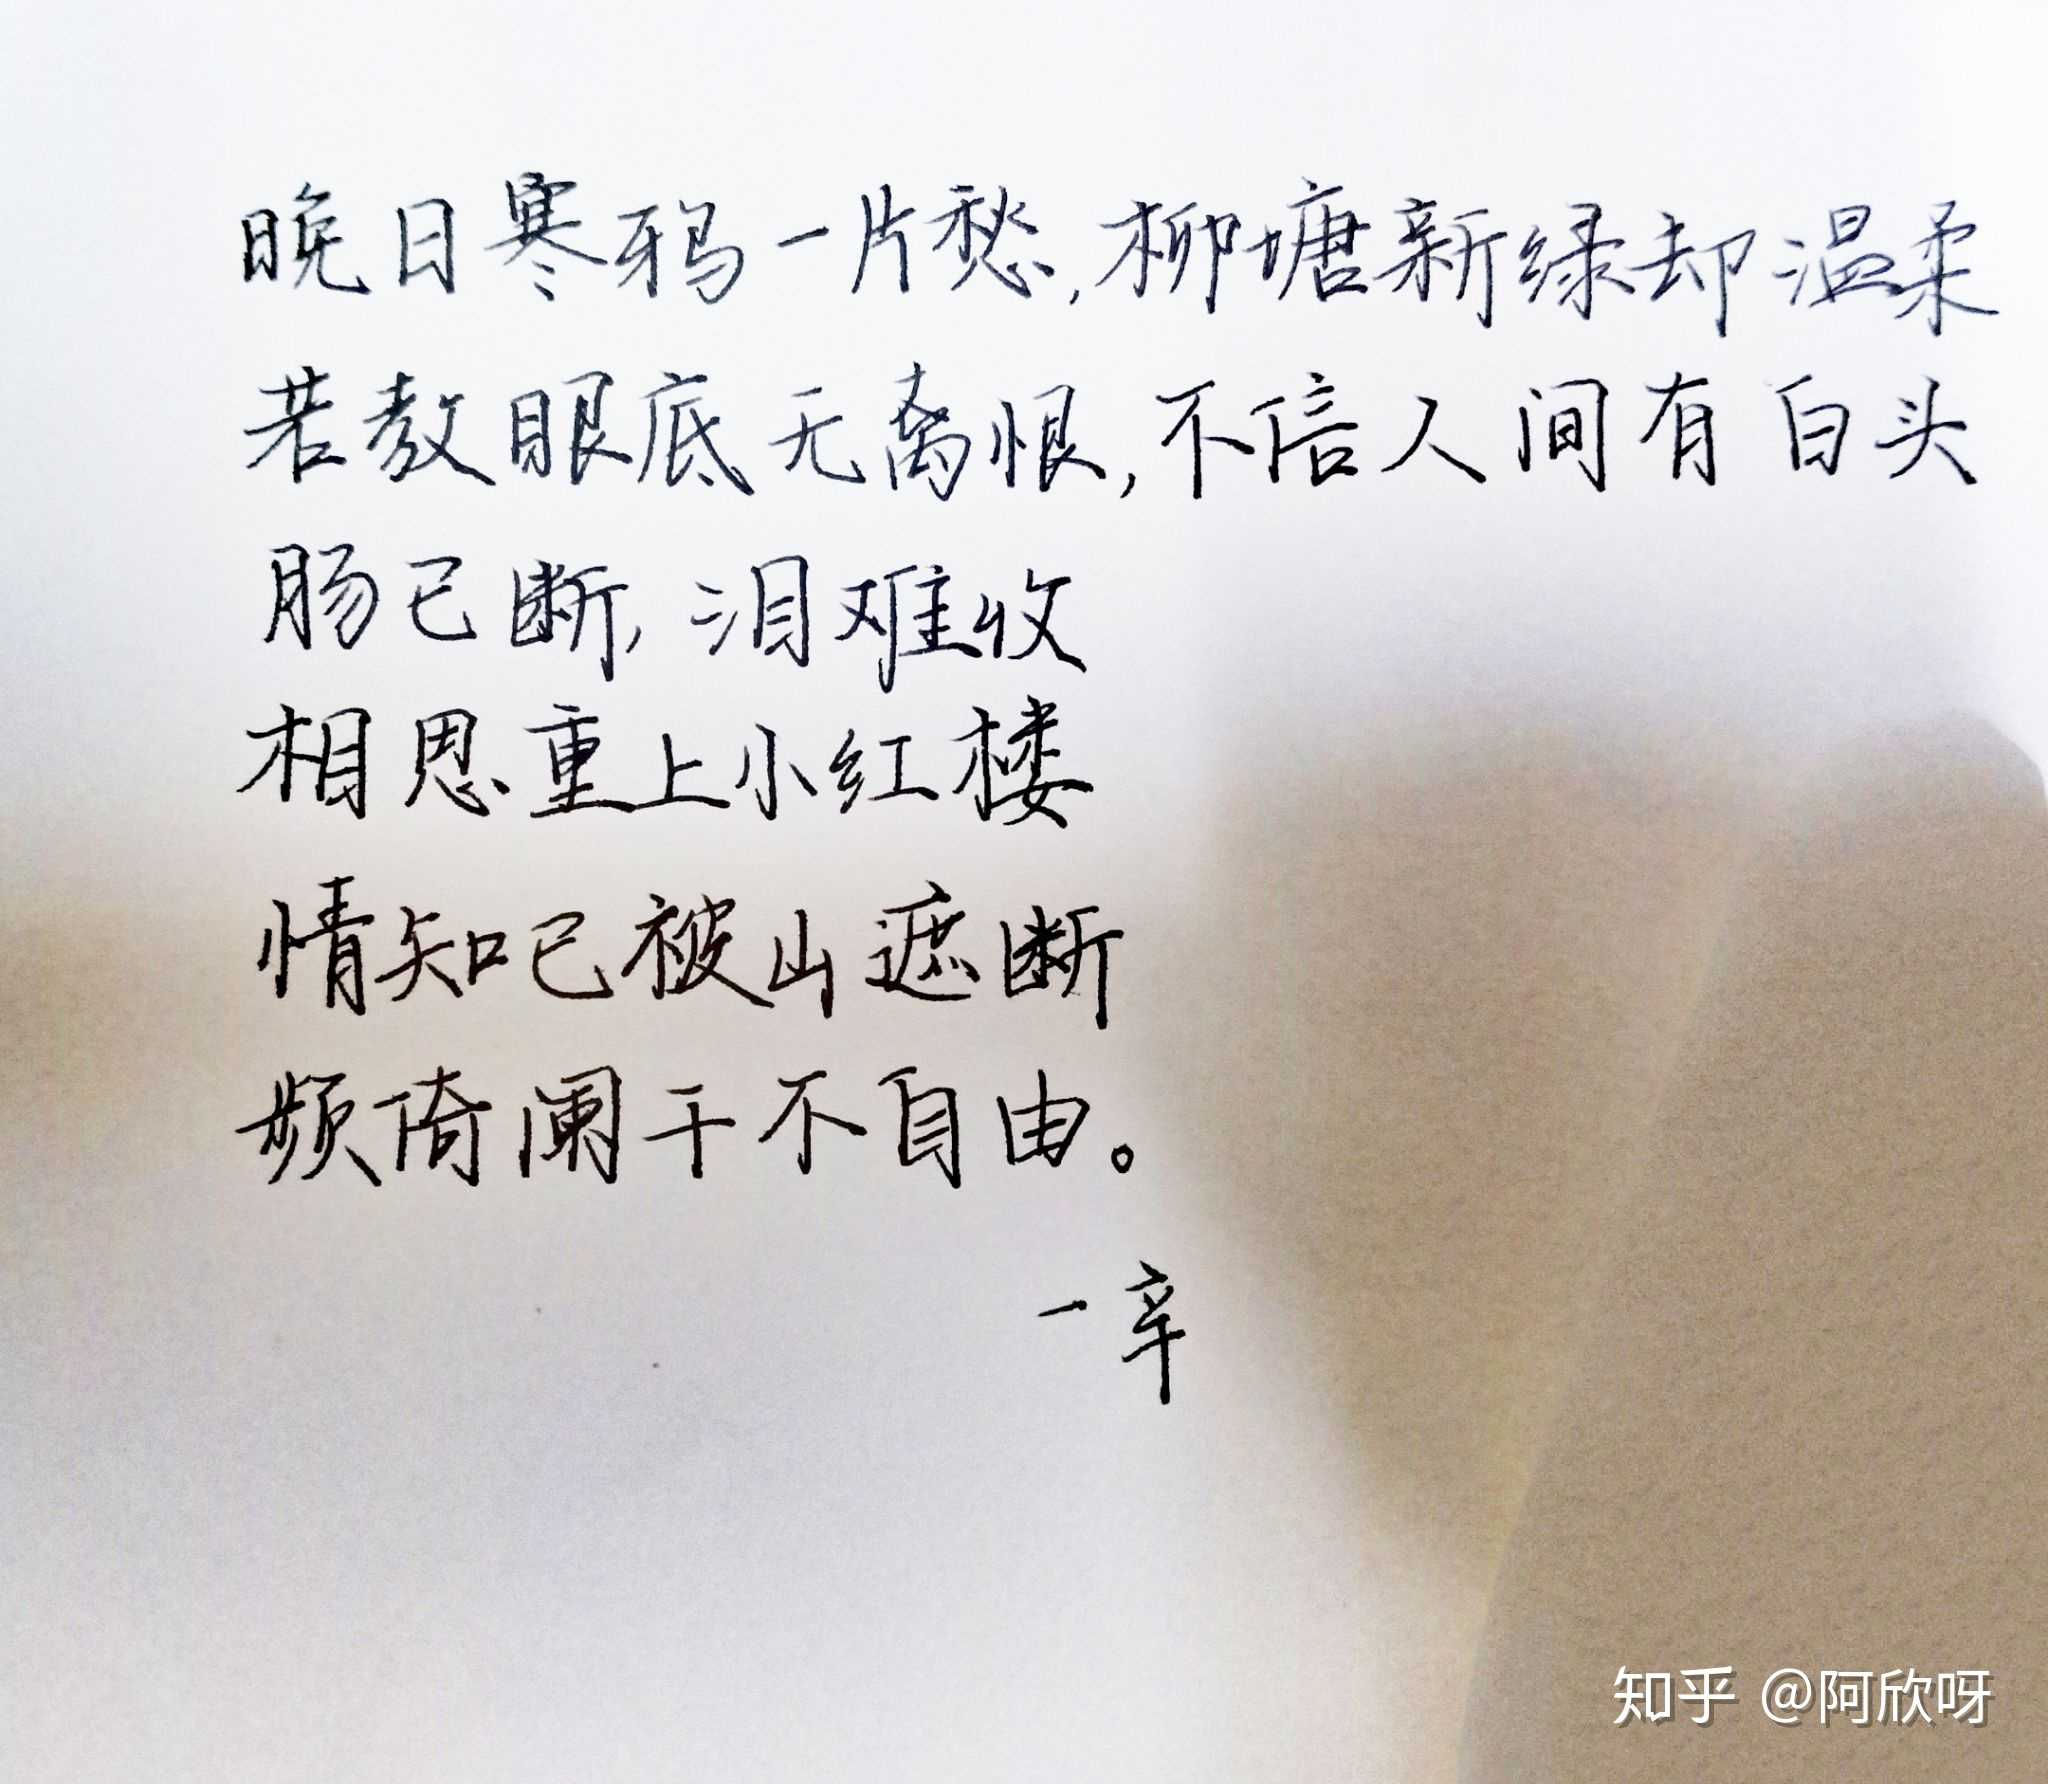 晚日寒鸦一片愁,柳塘新绿却温柔
若教眼底无离恨,不信人间有白头
肠已断,泪难收
相思重上小红楼
情知已被山遮断
频倚阑干不自由。
一辛
知乎 @阿欣呀